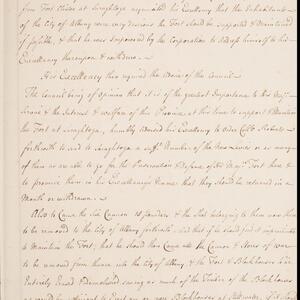 from Fort Clinton at Saraghtoga acquainted his Excellency that the Inhabitants
of the City of Albany were very desirous the Fort should be supported & maintained
if possible, & that he was impowered by the Corporation to address himself to his
Excellency thereupon & withdrew.
His Excellency then required the advice of the Council
The Council being of opinion that it is of the greatest Importance to His
Service & the Interest & welfare of this Province at this time to support & Maintain
the Fort at Saraghtoga, humbly advised his Excellency to order Coll Roberts
forthwith to send to Saraghtoga a sufft Number of the or as many
of them as are able to go for the Preservation & Defence of His Maj. Fort there &
to promise them in his Excellency's Name that they should be relieved in a
Month or withdrawn.
Also to Cause the Cannon 18 pounders & the Shot belonging to them now there
to be removed to the City of Albany forthwith, and that if he should find it impracticable
to Maintain the Fort, that he should then Cause all the Cannon & Stores of war
to be removed from thence into the City of Albany, & the Fort & Blockhouses to be
Entirely Erased & demolished saving as much of the Timber of the Blockhouses
as would be sufficient to Erect one or two Blockhouses at